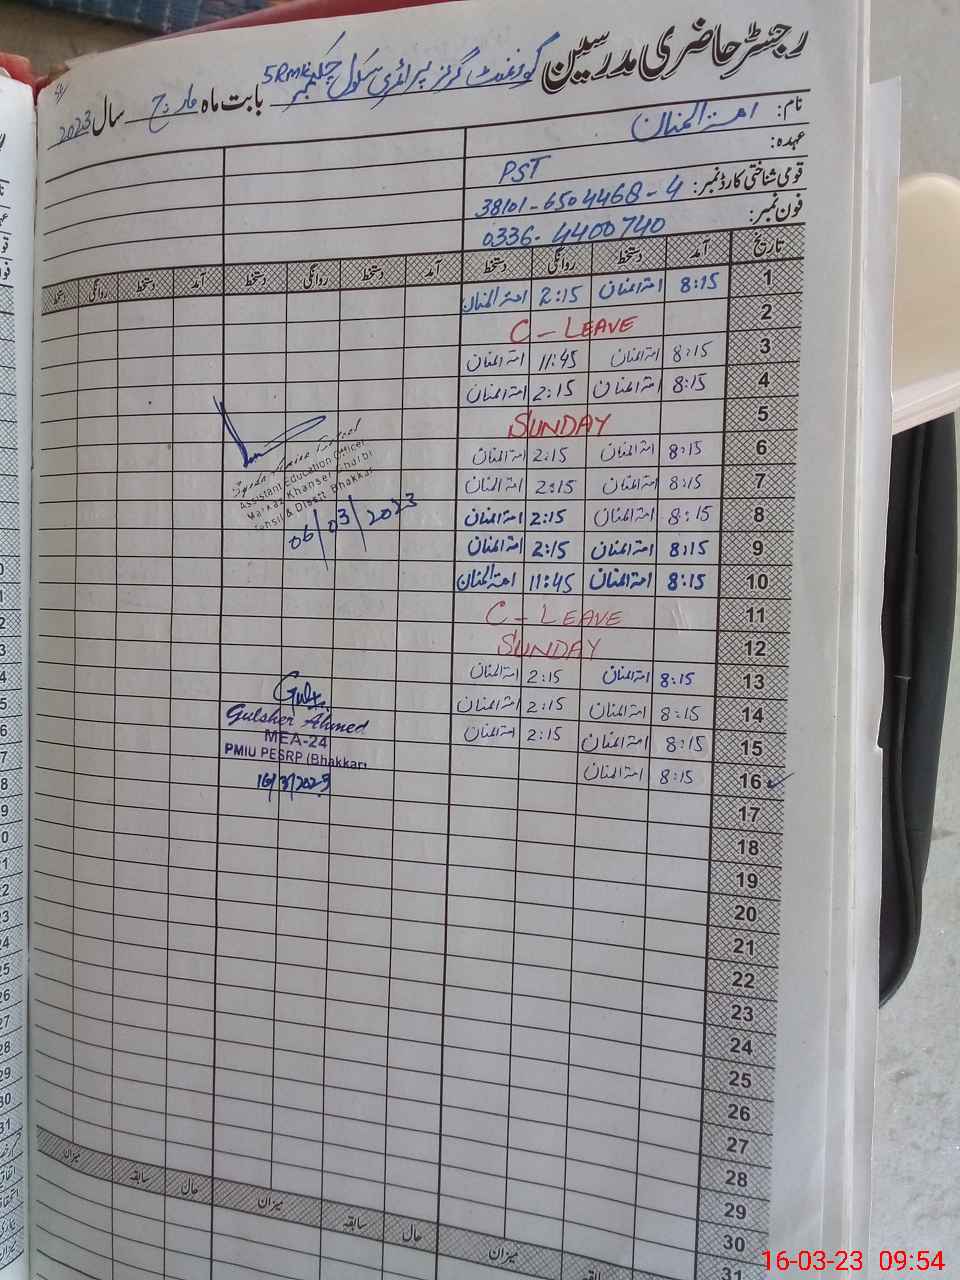 رجسٹر حاضری مدرسین گورنمنٹ گرلز پرائمری سکول چک نمبر 5RMK بابت ماہ مارچ سال 2023
نام: امتہ المنان
عہدہ: PST
قومی شناختی کارڈ نمبر: 38101-6504468-4
فون نمبر: 0336-4400740
تاریخ آمد دستخط روانگی دستخط آمد دستخط روانگی دستخط آمد دستخط روانگی دستخط
1 8:15 امتہ المنان 2:15 امتہ المنان
2 C-LEAVE
3 8:15 امتہ المنان 11:45 امتہ المنان
4 8:15 امتہ المنان 2:15 امتہ المنان
5 SUNDAY
6 8:15 امتہ المنان 2:15 امتہ المنان
7 8:15 امتہ المنان 2:15 امتہ المنان
8 8:15 امتہ المنان 2:15 امتہ المنان
9 8:15 امتہ المنان 2:15 امتہ المنان
10 8:15 امتہ المنان 11:45 امتہ المنان
11 C-LEAVE
12 SUNDAY
13 8:15 امتہ المنان 2:15 امتہ المنان
14 8:15 امتہ المنان 2:15 امتہ المنان
15 8:15 امتہ المنان 2:15 امتہ المنان
16 8:15 امتہ المنان
17
18
19
20
21
22
23
24
25
26
27
28
29
30
31
Assistant Education Officer
Markaz Khanser Gharbi
Tehsil & Distt Bhakkar
06/03/2023
Gulsher Ahmed
MEA-24
PMIU PESRP (Bhakkar)
16/3/2023
میزان سابقہ حال میزان سابقہ حال میزان سابقہ
16-03-23 09:54